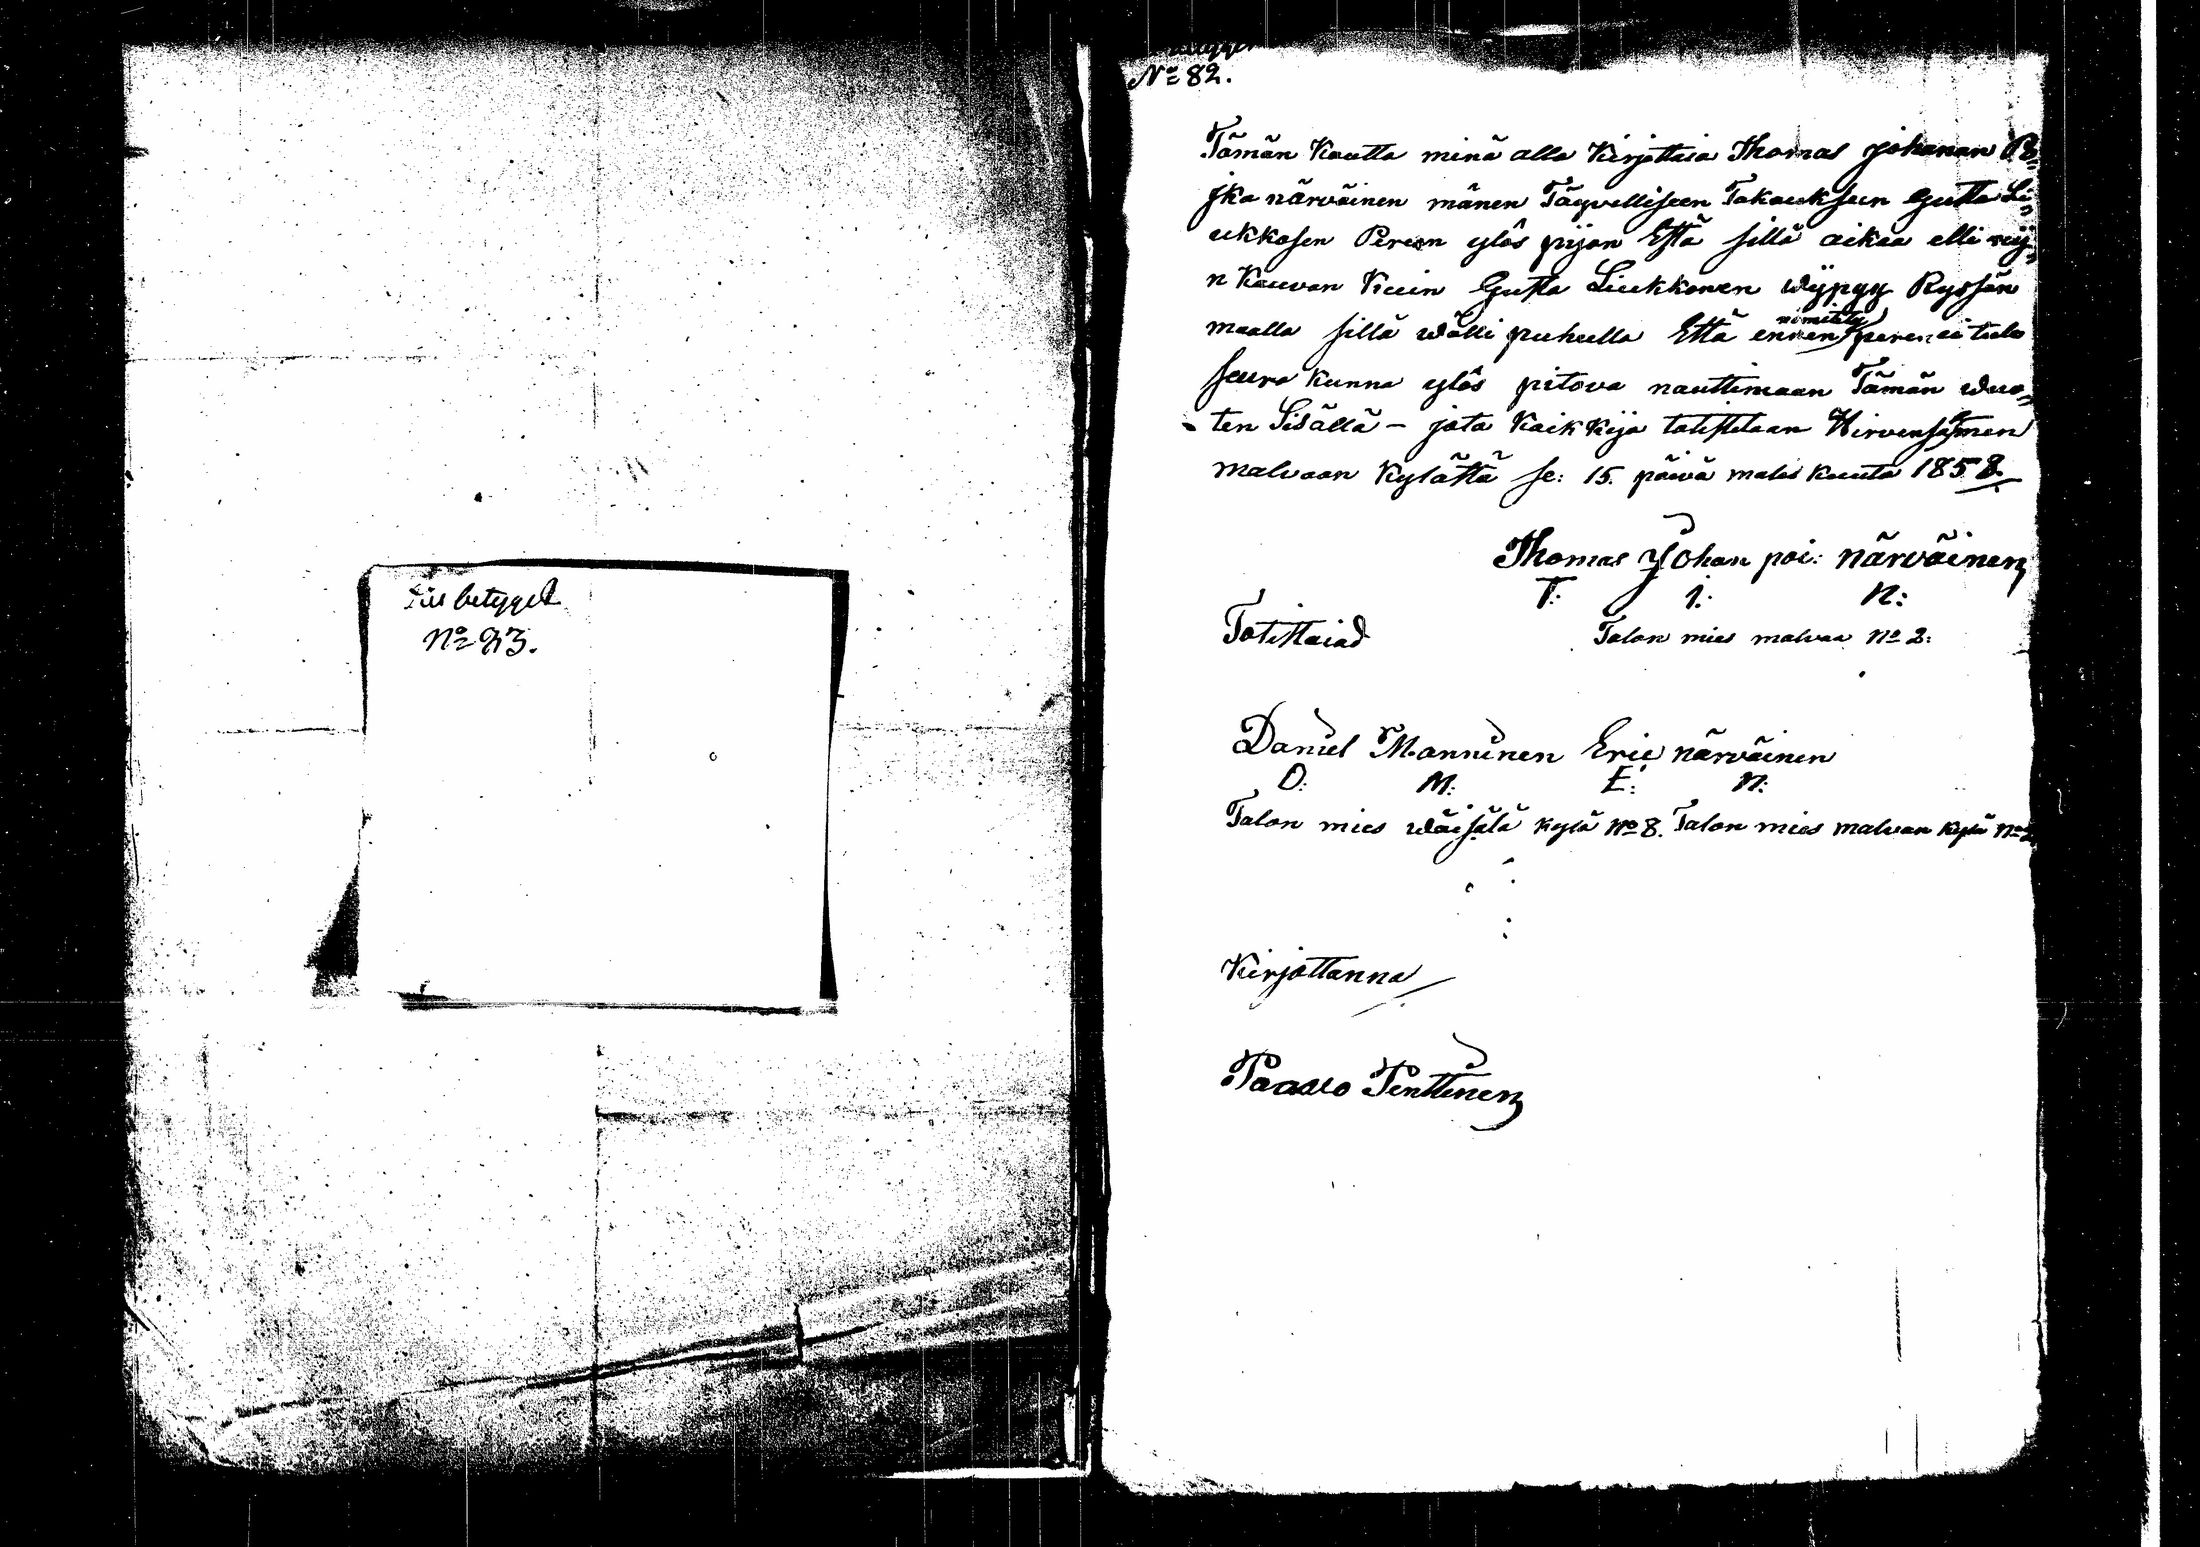 betyget
No 93.
No 82.
Tämän Kautta minä alla Kirjottaia Thomas johanan Po=
jka närväinen mänen Täyvelliseen Takaukseen Gusta Li=
ukkosen Pereen ylös pijon Että sillä aikaa elli nij=
n Kauvan Kuin Gusta Liukkonen wijpyy Ryssän
maalla sillä wälli puheella Että ennen nimitety peren ei tule
seura kunna ylös pitova nauttimaan Tämän wuo=
ten Sisällä - jota Kaikkija totistetaan Hirvensalmen
malvaan Kylältä se: 15. päivä malis kuuta 1858.
Thomas Johan poi: närväinen
T: I: N:
Totistaiad
Talon mies malvaa No 2:
Daniel Manninen Eric närväinen
D: M: E: N:
Talon mies wäisälä kylä No 8. Talon mies malvan kylä No 2
Kirjottanna
Paavo Penttinen